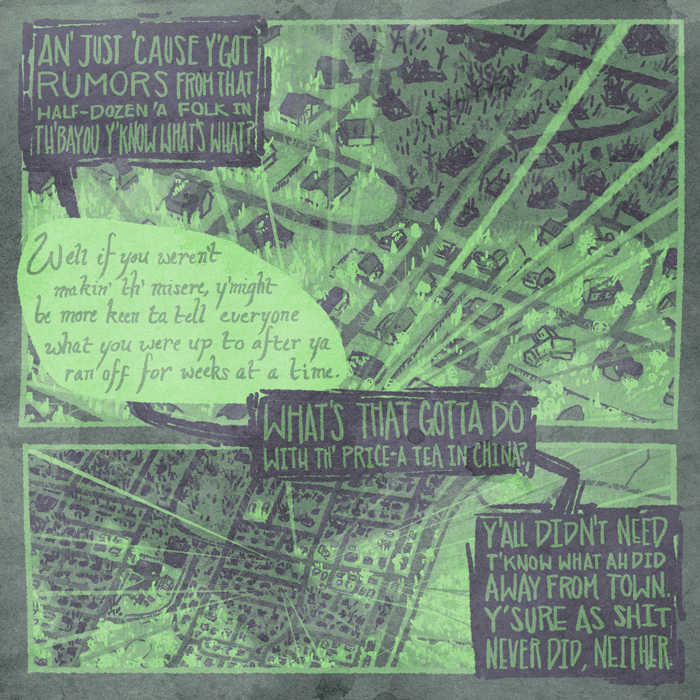 AN' JUST 'CAUSE Y'GOT
RUMORS FROM THAT
HALF-DOZEN 'A FOLK IN
TH'BAYOU Y'KNOW WHAT'S WHAT?
Well if you weren't
makin' th' misere, y'might
be more keen ta tell everyone
what you were up to after ya
ran off for weeks at a time.
WHAT'S THAT GOTTA DO
WITH TH' PRICE-A TEA IN CHINA?
Y'ALL DIDN'T NEED
T'KNOW WHAT AH DID
AWAY FROM TOWN.
Y'SURE AS SHIT
NEVER DID, NEITHER.